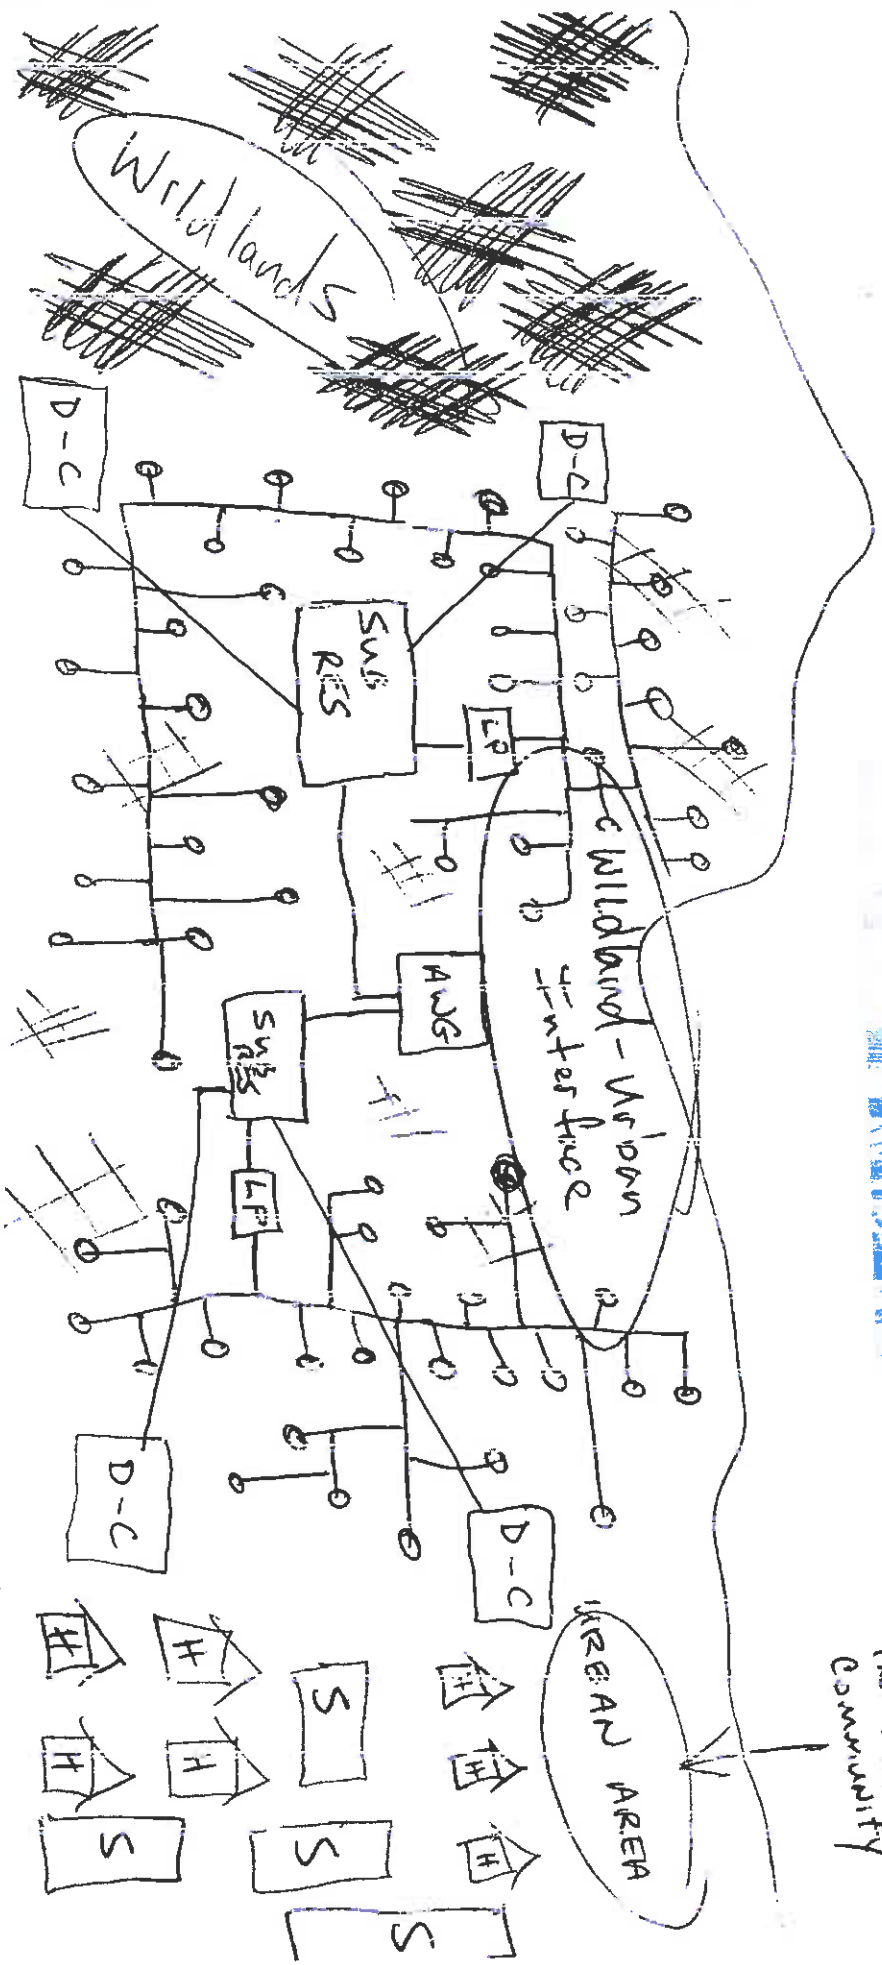 Wildlands
D-C
D-C
SUB
RES
LP
Wildland-Urban
Interface
AWG
SUB
RES
LP
D-C
D-C
URBAN AREA
COMMUNITY
H
H
H
H
H
H
H
S
S
S
S